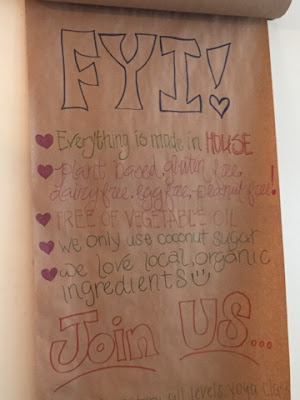 FYI!
Everything is made in HOUSE
Plant based, gluten free,
dairy free, egg free, peanut free!
FREE OF VEGETABLE OIL
we only use coconut sugar
we love local, organic
ingredients
Join US...
all levels yoga class